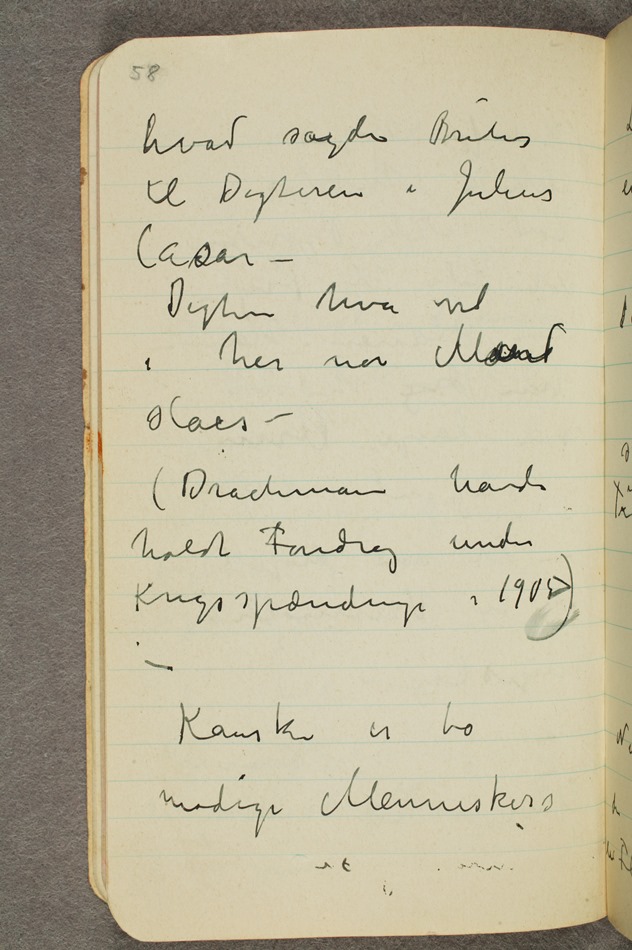 58
hvad sagde Brutus
til Digteren i Julius
Cæsar –
Digter hva vil
i her nar Mænd
slaes –
(Drachmann havde
holdt Foredrag under
Krigsspændingen i 1905)
–
Kanske er to
modige Menneskers